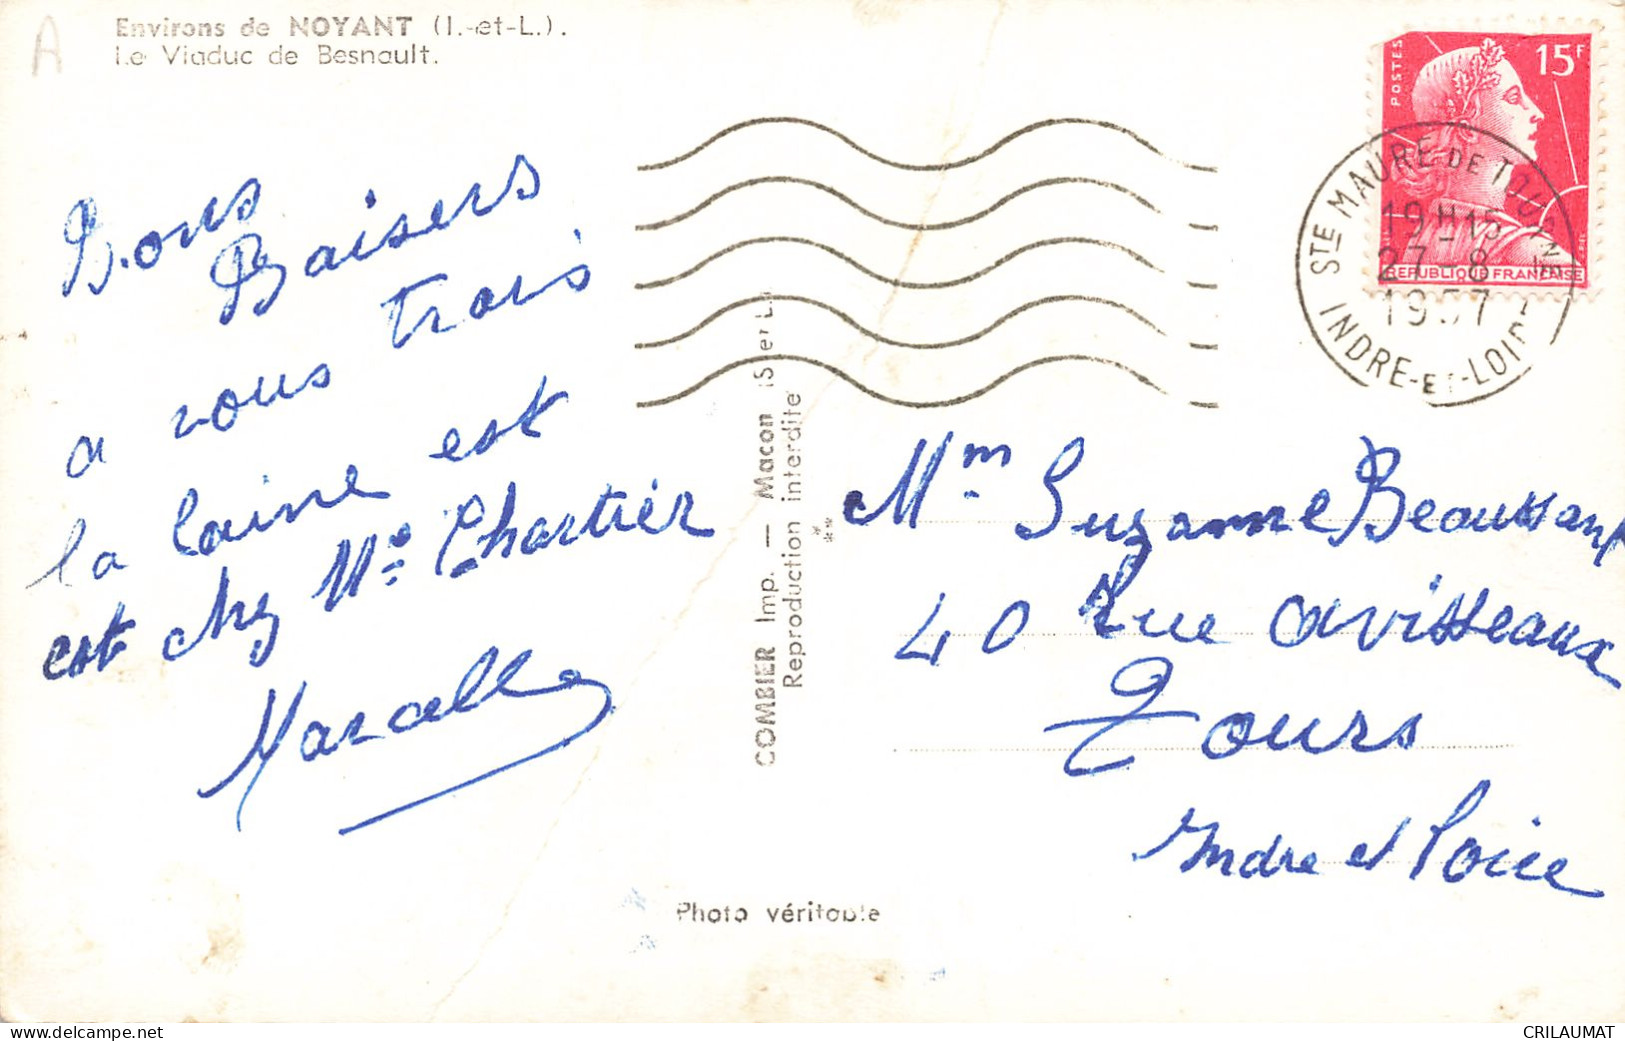 A
Environs de NOYANT (I.-et-L.).
Le Viaduc de Besnault.
Bons
Baisers
a vous trois
la laine est
est chez Me Chartier
Marcelle
COMBIER Imp. — Macon (S.-et-L.)
Reproduction interdite
Photo véritable
POSTES
15F
REPUBLIQUE FRANÇAISE
STE MAURE DE TOURAINE
19H15
27-8
1957
INDRE-ET-LOIRE
Mm Suzanne Beaussant
40 Rue avisseaux
Tours
Indre et Loire
CRILAUMAT
www.delcampe.net